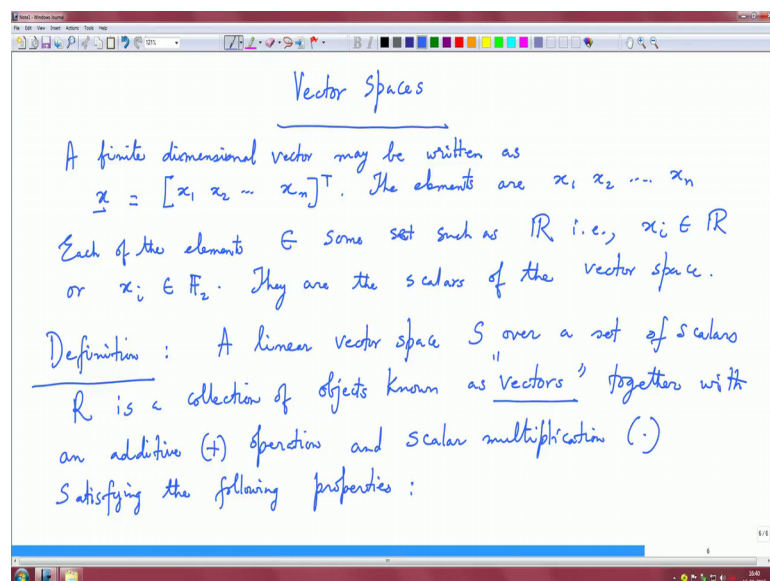 Note1 - Windows Journal
File Edit View Insert Actions Tools Help
121%
Vector Spaces
A finite dimensional vector may be written as
x = [x₁ x₂ ... xₙ]ᵀ. The elements are x₁ x₂ .... xₙ
Each of the elements ∈ some set such as ℝ i.e., xᵢ ∈ ℝ
or xᵢ ∈ 𝔽₂. They are the scalars of the vector space.
Definition : A linear vector space S over a set of scalars
R is a collection of objects known as "vectors" together with
an additive (+) operation and scalar multiplication (·)
Satisfying the following properties :
6/6
6
16:40